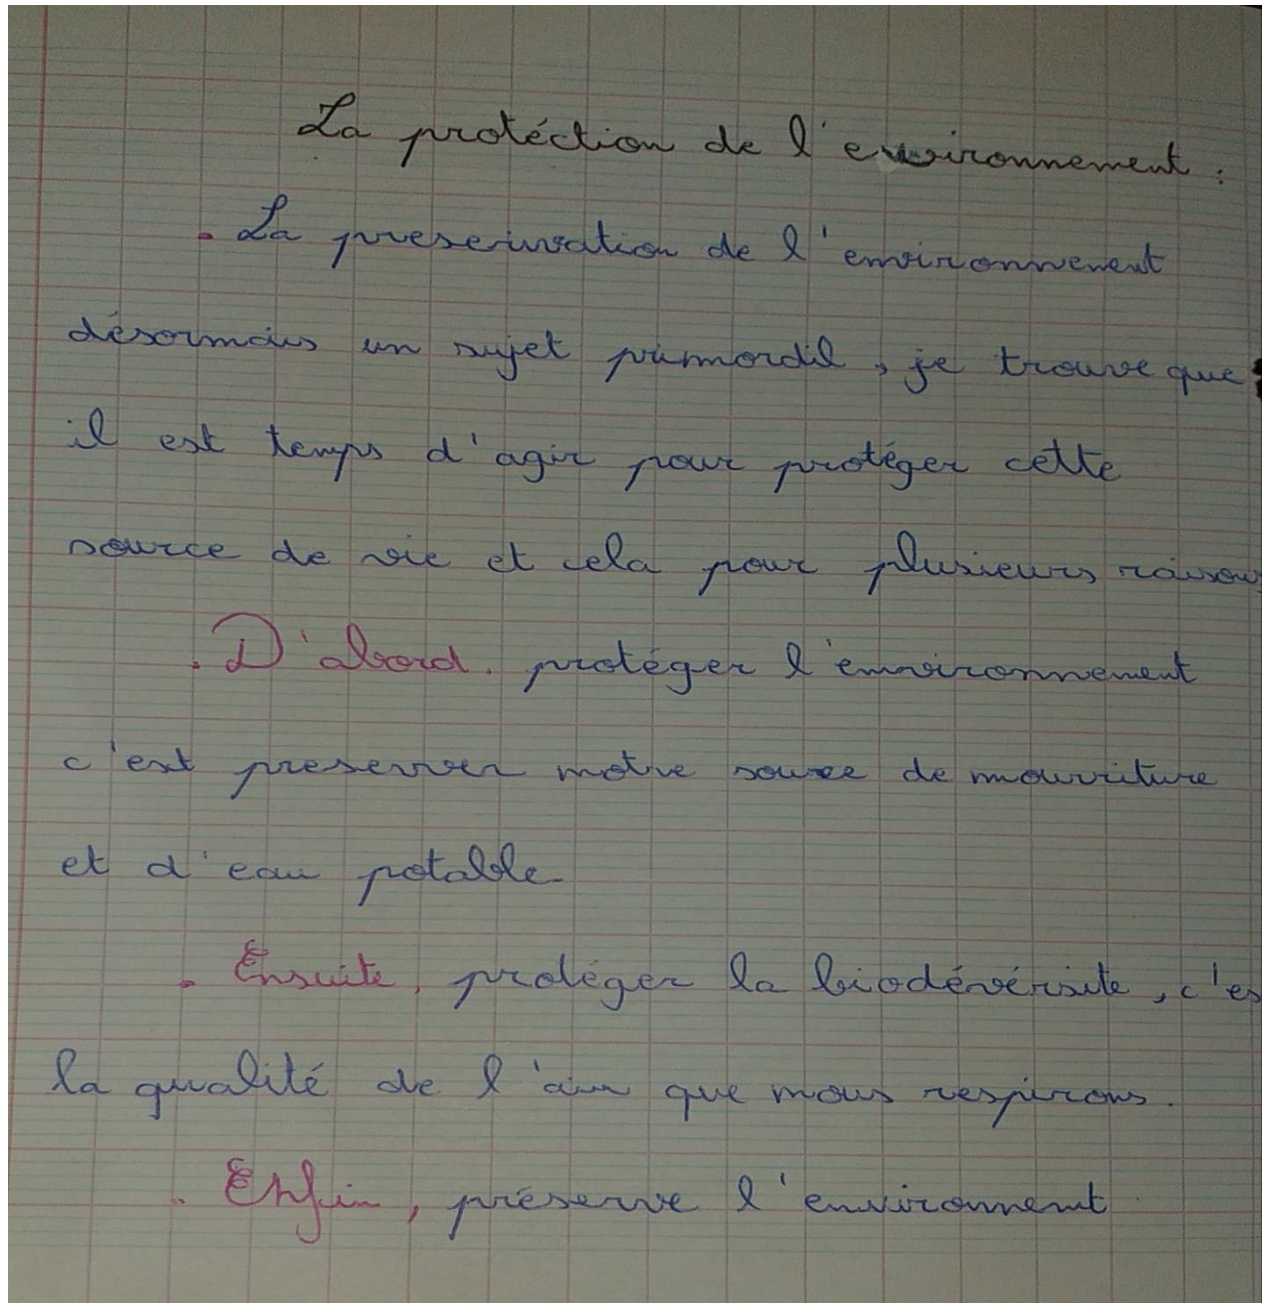 La protéction de l'environnement :
. La preservation de l'environnement
désormais un sujet primordil, je trouve que
il est temps d'agir pour protéger cette
source de vie et cela pour plusieurs raisons
. D'abord. protéger l'environnement
c'est preserver notre source de nourriture
et d'eau potable.
. Ensuite, protéger la biodévérsite, c'es
la qualité de l'air que nous respirons.
. Enfin, préserve l'environnement